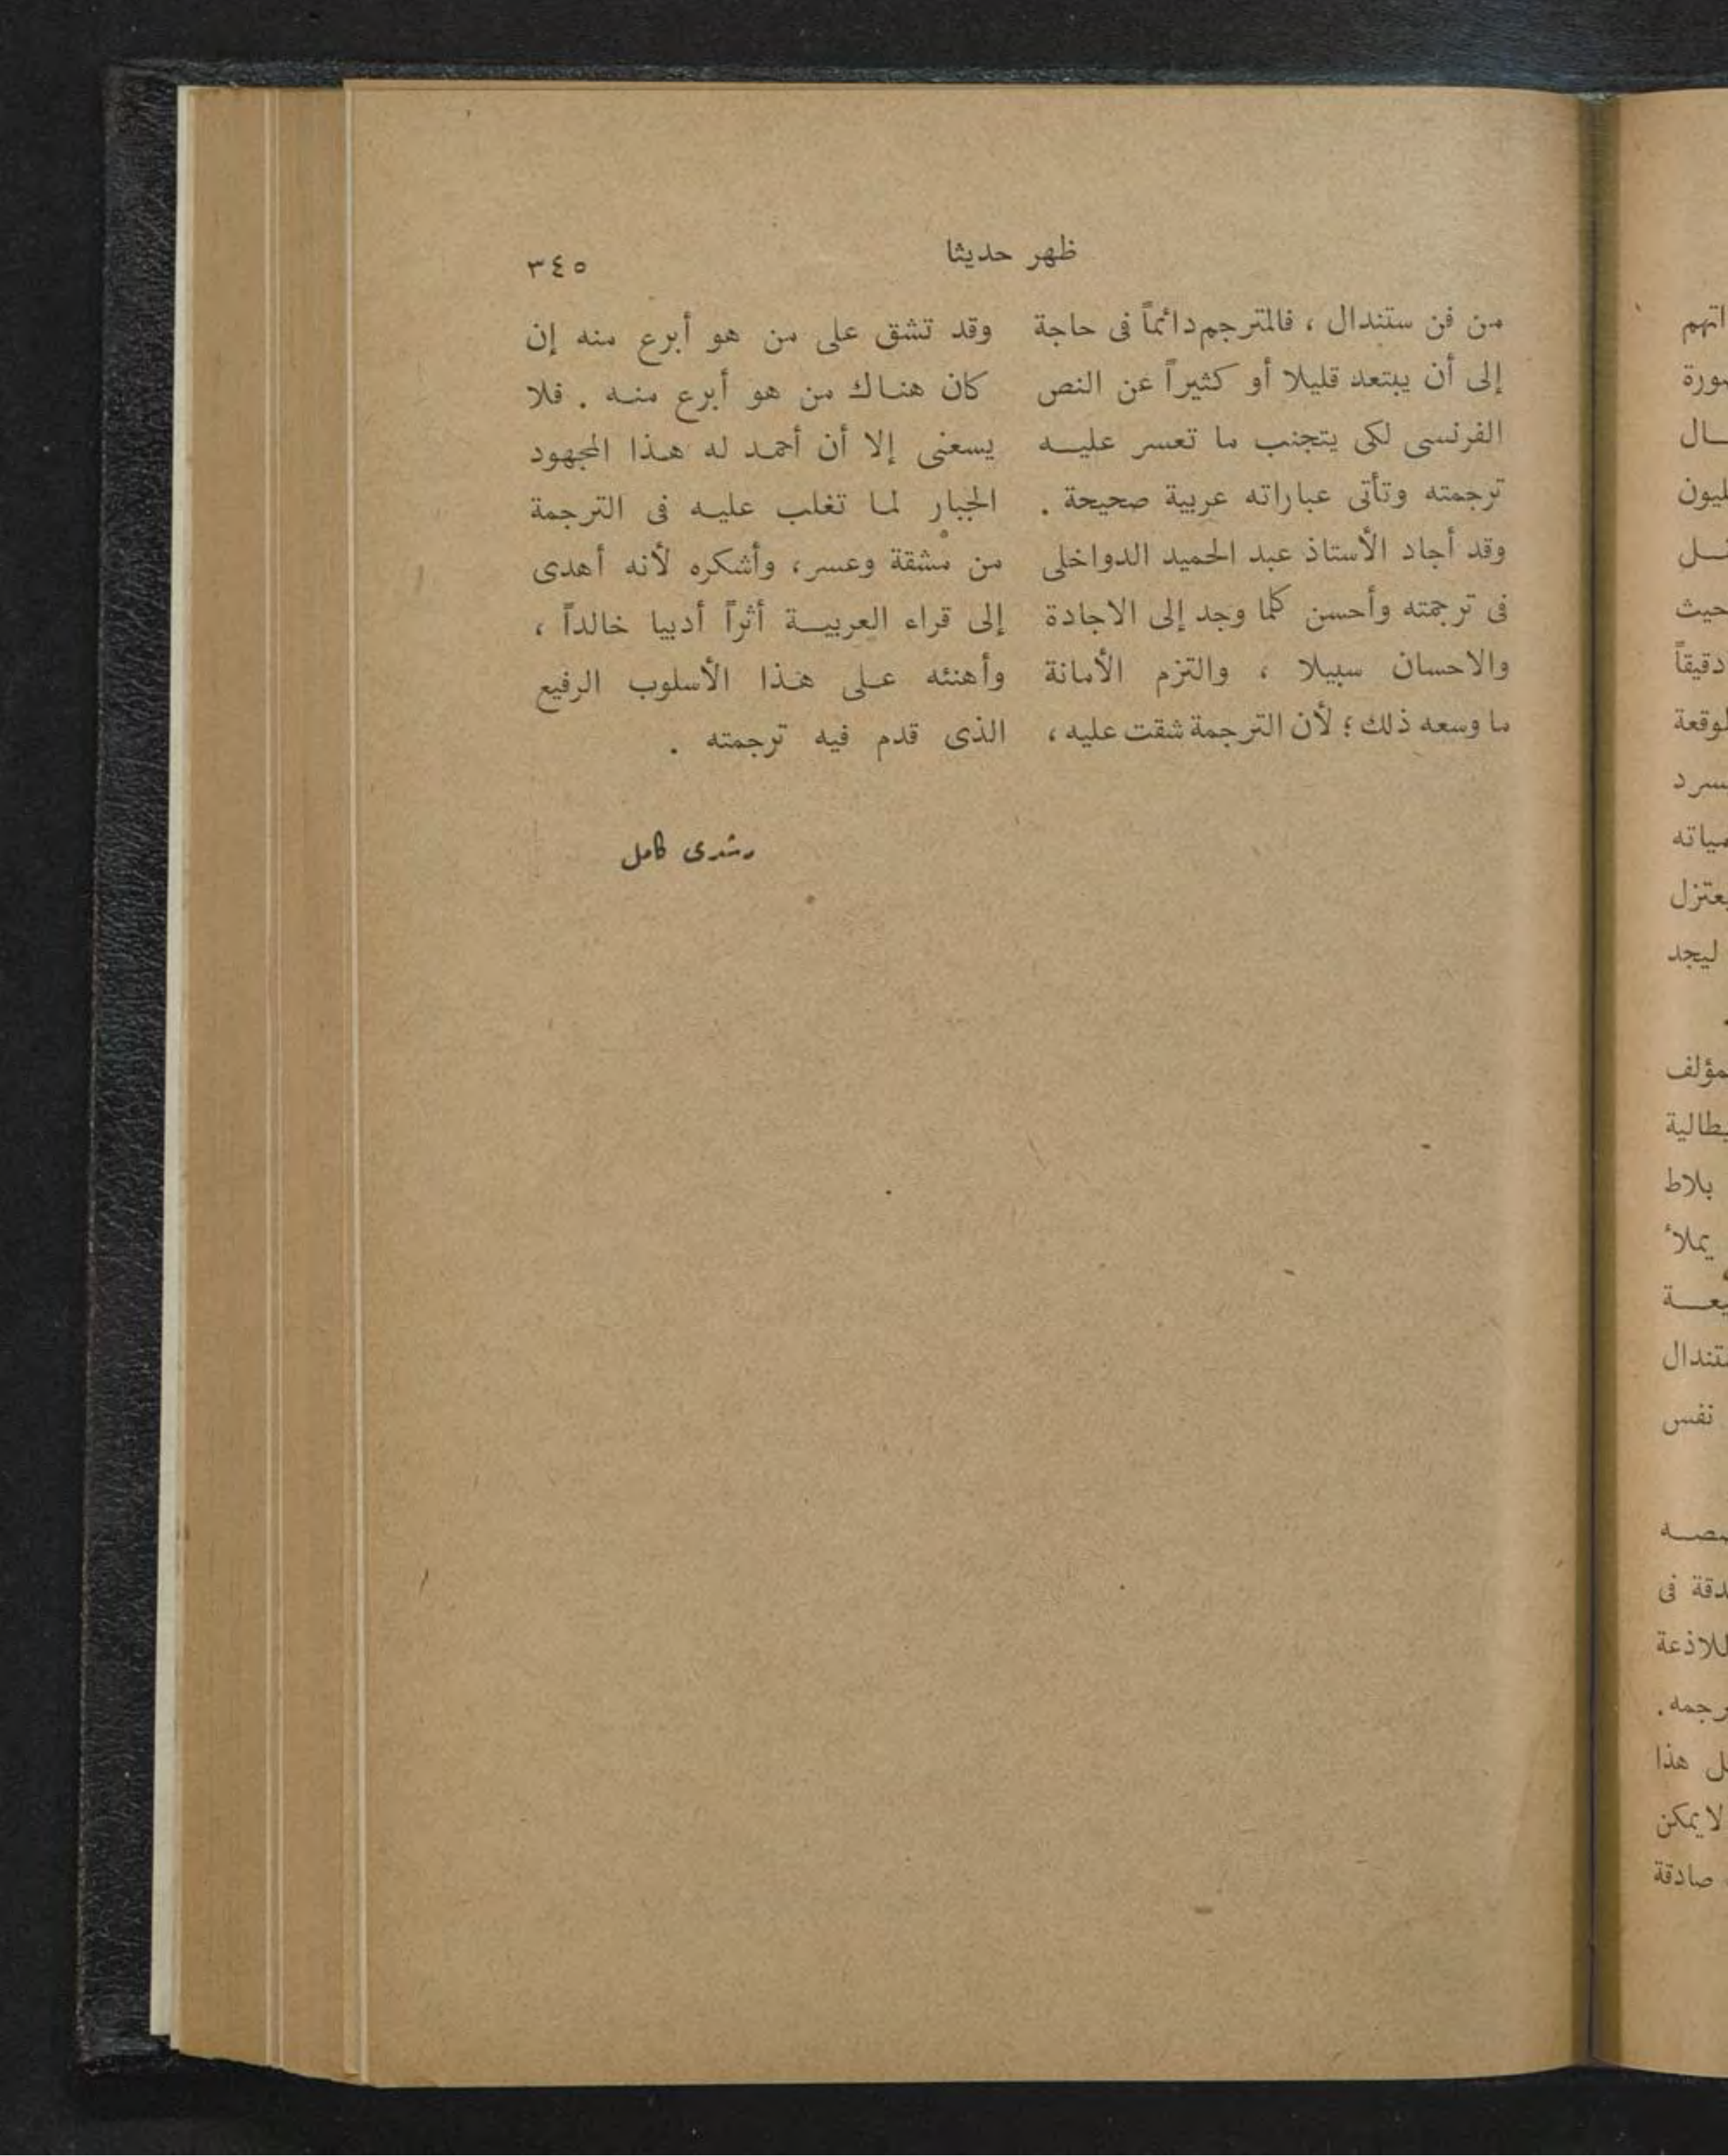 ظهر حديثا
٣٤٥
من فن ستندال ، فالمترجم دائماً فى حاجة
إلى أن يبتعد قليلا أو كثيراً عن النص
الفرنسى لكى يتجنب ما تعسر عليـــه
ترجمته وتأتى عباراته عربية صحيحة .
وقد أجاد الأستاذ عبد الحميد الدواخلى
فى ترجمته وأحسن كلما وجد إلى الاجادة
والاحسان سبيلا ، والتزم الأمانة
ما وسعه ذلك ؛ لأن الترجمة شقت عليه ،
وقد تشق على من هو أبرع منه إن
كان هناك من هو أبرع منـه . فلا
يسعنى إلا أن أحمد له هـذا المجهود
الجبار لمـا تغلب عليـه فى الترجمة
من مشقة وعسر، وأشكره لأنه أهدى
إلى قراء العربيـــة أثراً أدبيا خالداً ،
وأهنئه عـلى هـذا الأسلوب الرفيع
الذى قدم فيه ترجمته .
رشدى كامل
دقيقاً
ليجد
بلاط
يملأ
نفس
هذا
لا يمكن
صادقة